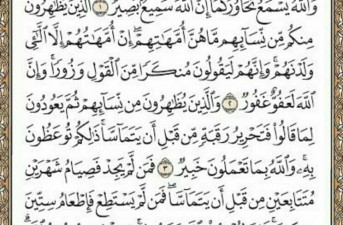 وَاللَّهُ يَسْمَعُ تَحَاوُرَكُمَا إِنَّ اللَّهَ سَمِيعٌ بَصِيرٌ ١ الَّذِينَ يُظَاهِرُونَ
مِنكُم مِّن نِّسَائِهِم مَّا هُنَّ أُمَّهَاتِهِمْ إِنْ أُمَّهَاتُهُمْ إِلَّا اللَّائِي
وَلَدْنَهُمْ وَإِنَّهُمْ لَيَقُولُونَ مُنكَرًا مِّنَ الْقَوْلِ وَزُورًا وَإِنَّ
اللَّهَ لَعَفُوٌّ غَفُورٌ ٢ وَالَّذِينَ يُظَاهِرُونَ مِن نِّسَائِهِمْ ثُمَّ يَعُودُونَ
لِمَا قَالُوا فَتَحْرِيرُ رَقَبَةٍ مِّن قَبْلِ أَن يَتَمَاسَّا ذَٰلِكُمْ تُوعَظُونَ
بِهِ وَاللَّهُ بِمَا تَعْمَلُونَ خَبِيرٌ ٣ فَمَن لَّمْ يَجِدْ فَصِيَامُ شَهْرَيْنِ
مُتَتَابِعَيْنِ مِن قَبْلِ أَن يَتَمَاسَّا فَمَن لَّمْ يَسْتَطِعْ فَإِطْعَامُ سِتِّينَ